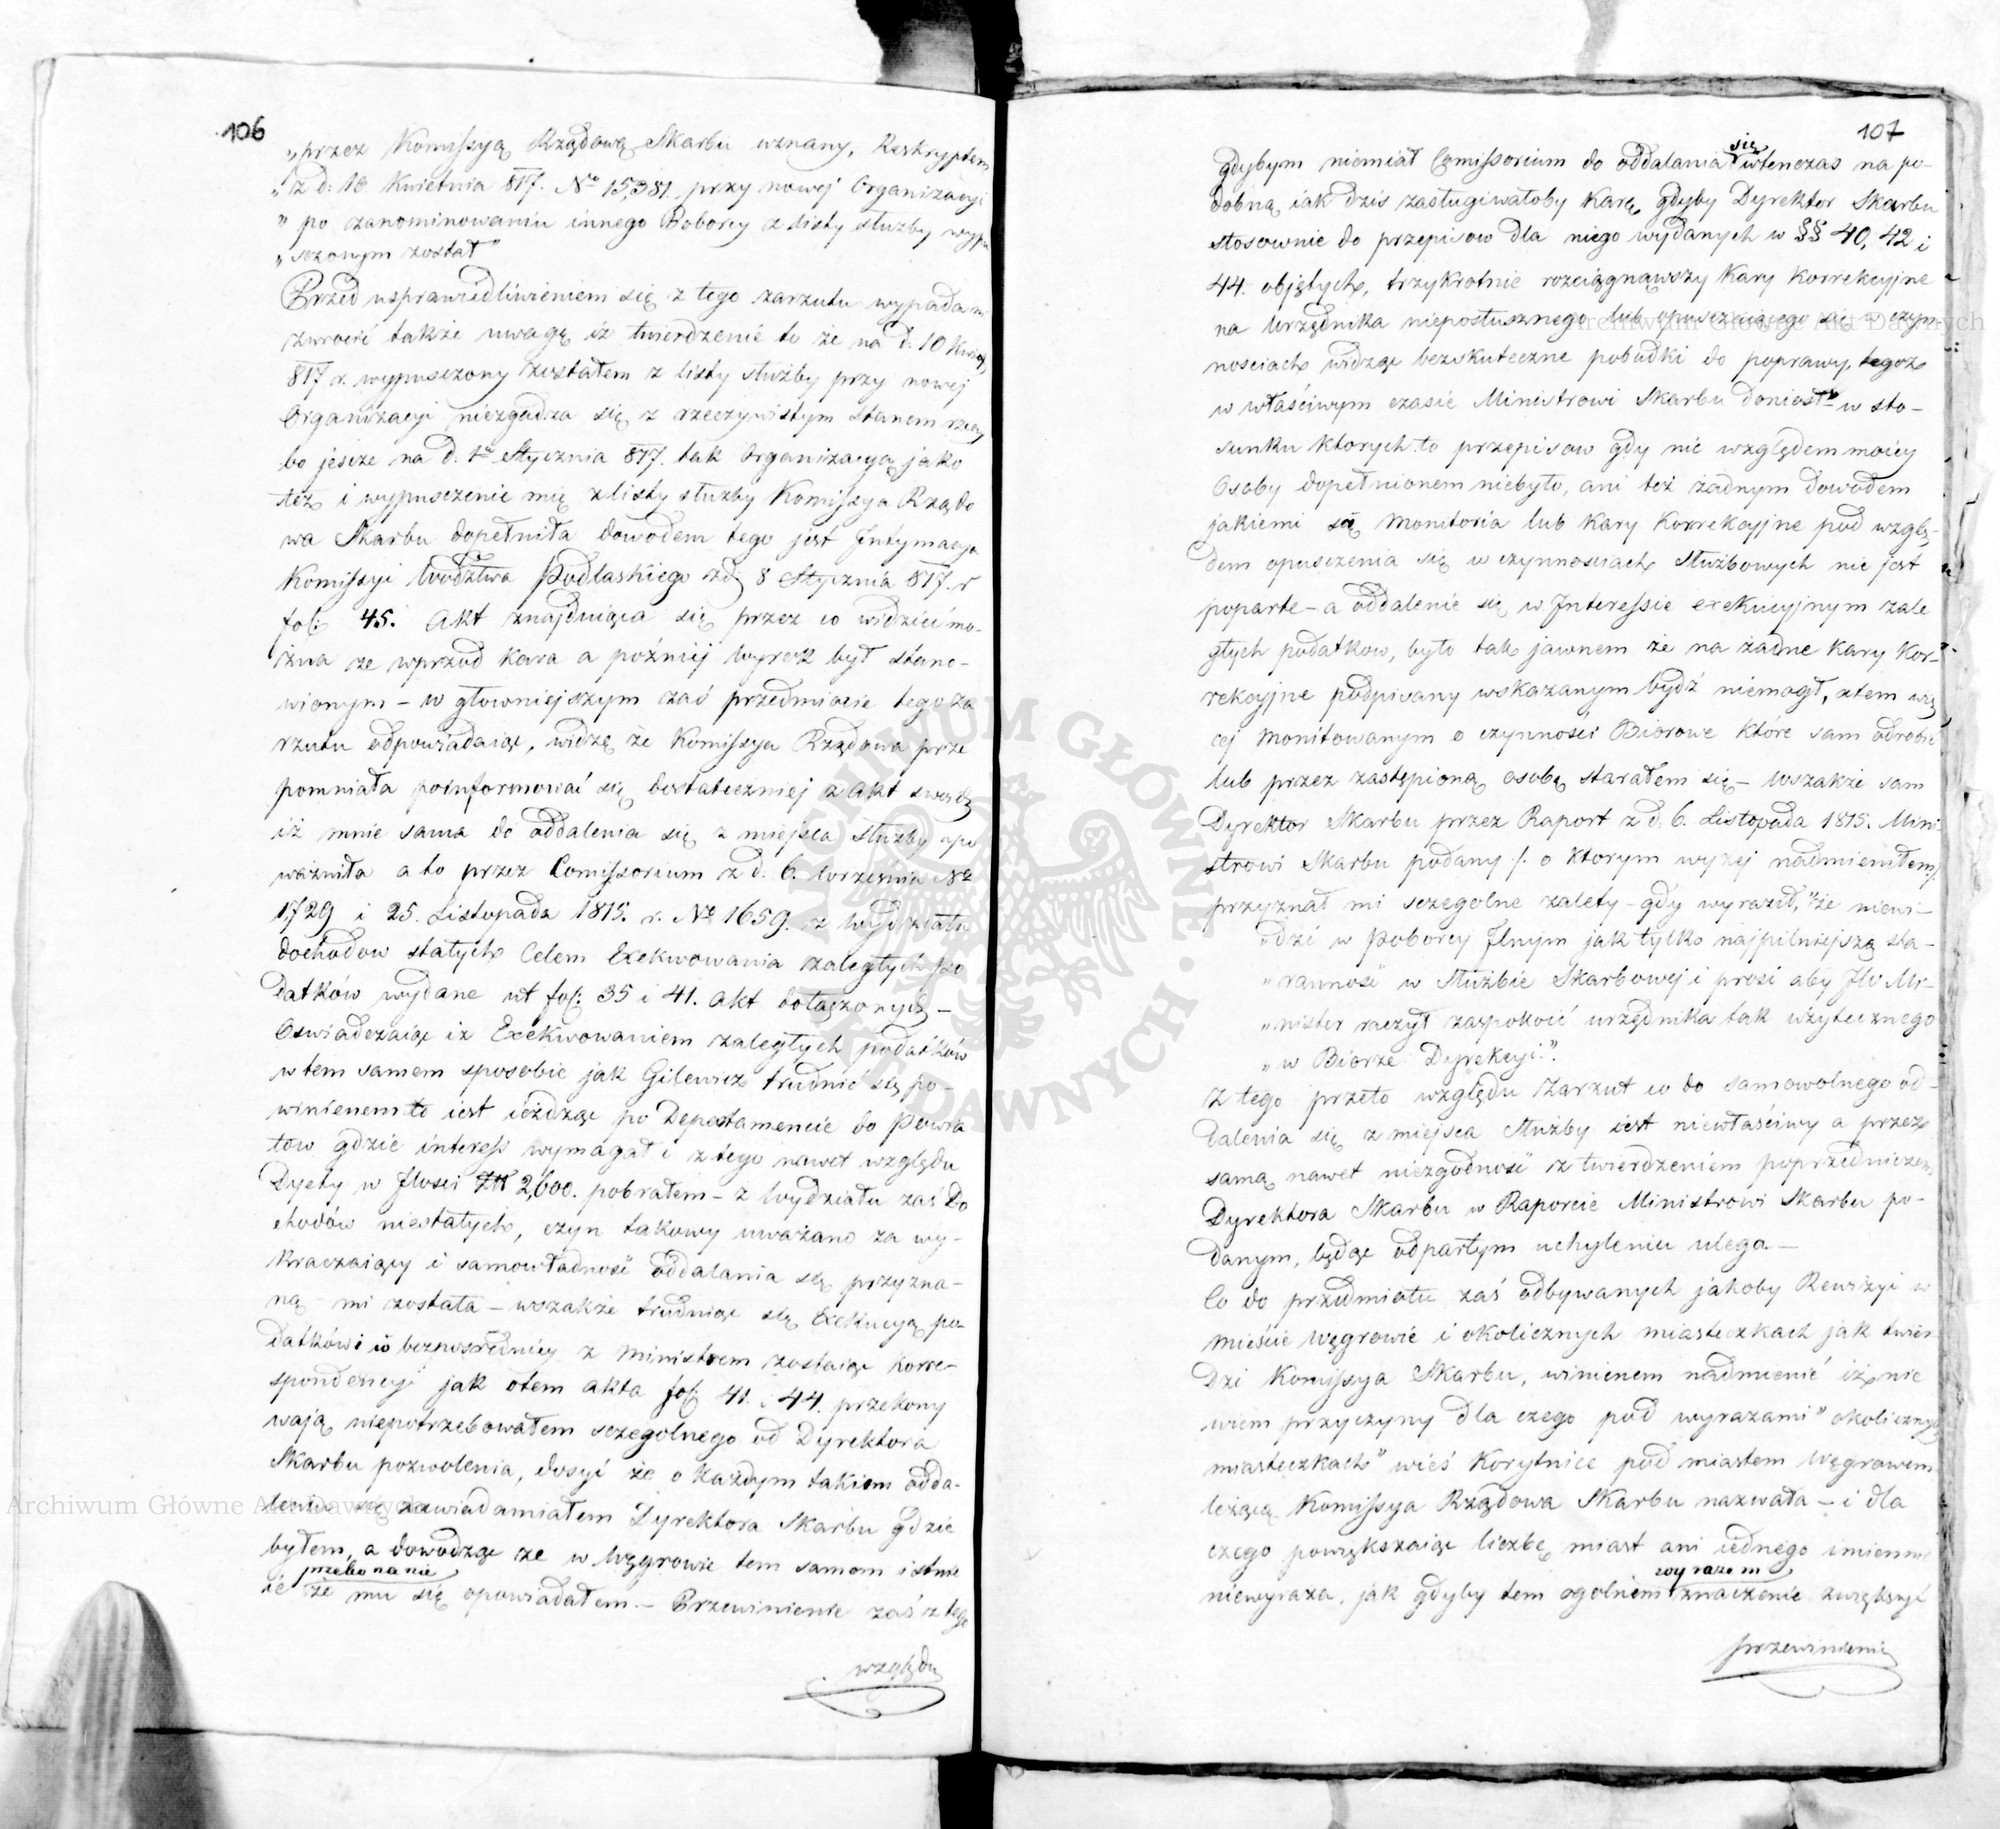 106
„przez Komissyą Rządową Skarbu uznany, Reskryptem
„z d: 10 Kwietnia 817. No 15,381. przy nowej Organizacyi
„po zanominowaniu innego Poborcy z listy służby wypu
„sczonym został"
Przed usprawiedliwieniem się z tego zarzutu wypada mi
zwrócić także uwagę iż twierdzenie to że na d: 10 Kwiet
817 r. wypusczony zostałem z listy służby przy nowej
Organizacyi niezgadza się z rzeczywistym Stanem rzeczy
bo jescze na d. 1o Stycznia 817. tak Organizacyą jako
też i wypusczenie mię z listy służby Komissya Rządo
wa Skarbu dopełniła dowodem tego jest Intymacya
Komissyi Wodztwa Podlaskiego z d: 8 Stycznia 817. r
fol: 45. Akt znajduiąca się przez co widzieć mo-
żna że wprzod kara a pożniej Wyrok był stano-
wionym – w głowniejszym zaś przedmiocie tego za
rzutu odpowiadaiąc, widzę że Komissya Rządowa prze
pomniała poinformować się dostateczniej z Akt swoich
iż mnie sama do oddalenia się z miejsca służby upo
ważniła a to przez Comissorium z d. 6. Września No
1729 i 25. Listopada 1815. r. No 1659. z Wydziału
dochodow stałych Celem Exekwowania zaległych po
datków wydane ut fol: 35 i 41. Akt dołączonych –
Oswiadczaiąc iż Exekwowaniem zaległych podatków
w tem samem sposobie jak Gilewicz trudnić się po-
winienem to iest ieżdżąc po Departamencie do Powia
tow gdzie interess wymagał i z tego nawet względu
Dyety w Ilosci Złł 2,600. pobrałem – z Wydziału zaś Do
chodów niestałych, czyn takowy uważano za wy-
kraczaiący i samowładność oddalania się przyzna-
ną mi została – wszakże trudniąc się Exekucyą po-
datków i w bezpośredniey z Ministrem zostaiąc korre-
spondencyi jak o tem Akta fol: 41. i 44. przekony
waią niepotrzebowałem sczegolnego od Dyrektora
Skarbu pozwolenia, dosyć że o każdym takiem odda-
leniu się zawiadamiałem Dyrektora Skarbu gdzie
byłem, a dowodząc że w Węgrowie tem samem istnie
przekonanie
ie że mu się opowiadałem. – Przewinienie zaś z tego
względu
107
się
gdybym niemiał Comissorium do oddalania wtenczas na po-
dobną iak dziś zasługiwałoby Karę gdyby Dyrektor Skarbu
stosownie do przepisow dla niego wydanych w §§ 40, 42 i
44. objętych, trzykrotnie rozciągnąwszy Kary Korrekcyjne
na Urzędnika nieposłusznego lub opusczaiącego się w czyn
nosciach widząc bezskuteczne pobudki do poprawy, tegoż
w właściwym czasie Ministrowi Skarbu doniosł – w sto-
sunku ktorych to przepisow gdy nic względem moiey
Osoby dopełnionem niebyło, ani też żadnym dowodem
jakiemi są monitoria lub Kary Korrekcyjne pod wzglę-
dem opusczenia się w czynnosciach służbowych nie jest
poparte – a oddalenie się w Interessie exekucyjnym zale
głych podatkow, było tak jawnem że na żadne Kary Kor-
rekcyjne podpisany wskazanym bydź niemogł, a tem wię
cej monitowanym o czynności Biorowe które sam odrobić
lub przez zastępioną osobę starałem się – Wszakże sam
Dyrektor Skarbu przez Raport z d. 6. Listopada 1815. Mini
strowi Skarbu podany /: o ktorym wyzej nadmieniłem:/
przyznał mi sczegolne zalety – gdy wyraził, "że niewi-
„dzi w Poborcy Ilnym jak tylko najpilniejszą sta-
„ranność w Służbie Skarbowej i prosi aby JW Mi-
„nister raczył zaspokoić urzędnika tak użytecznego
„w Biorze Dyrekcyi".
Z tego przeto względu zarzut co do samowolnego od-
dalenia się z miejsca służby iest niewłaściwy a przez
samą nawet niezgodność z twierdzeniem poprzedniczem
Dyrektora Skarbu w Raporcie Ministrowi Skarbu po-
danym, będąc odpartym uchyleniu ulega. –
Co do przedmiotu zaś odbywanych jakoby Rewizyi w
Mieście Węgrowie i okolicznych miasteczkach jak twier
dzi Komissya Skarbu, winienem nadmienić iż nie
wiem przyczyny dla czego pod wyrazami "okolicznych
miasteczkach" wieś Korytnice pod miastem Węgrowem
leżącą Komissya Rządowa Skarbu nazwała – i dla
czego powiększaiąc liczbę miast ani iednego imienne
wyrazem
niewyraza, jak gdyby tem ogolnem znaczenie zwiększyć
przewinienia